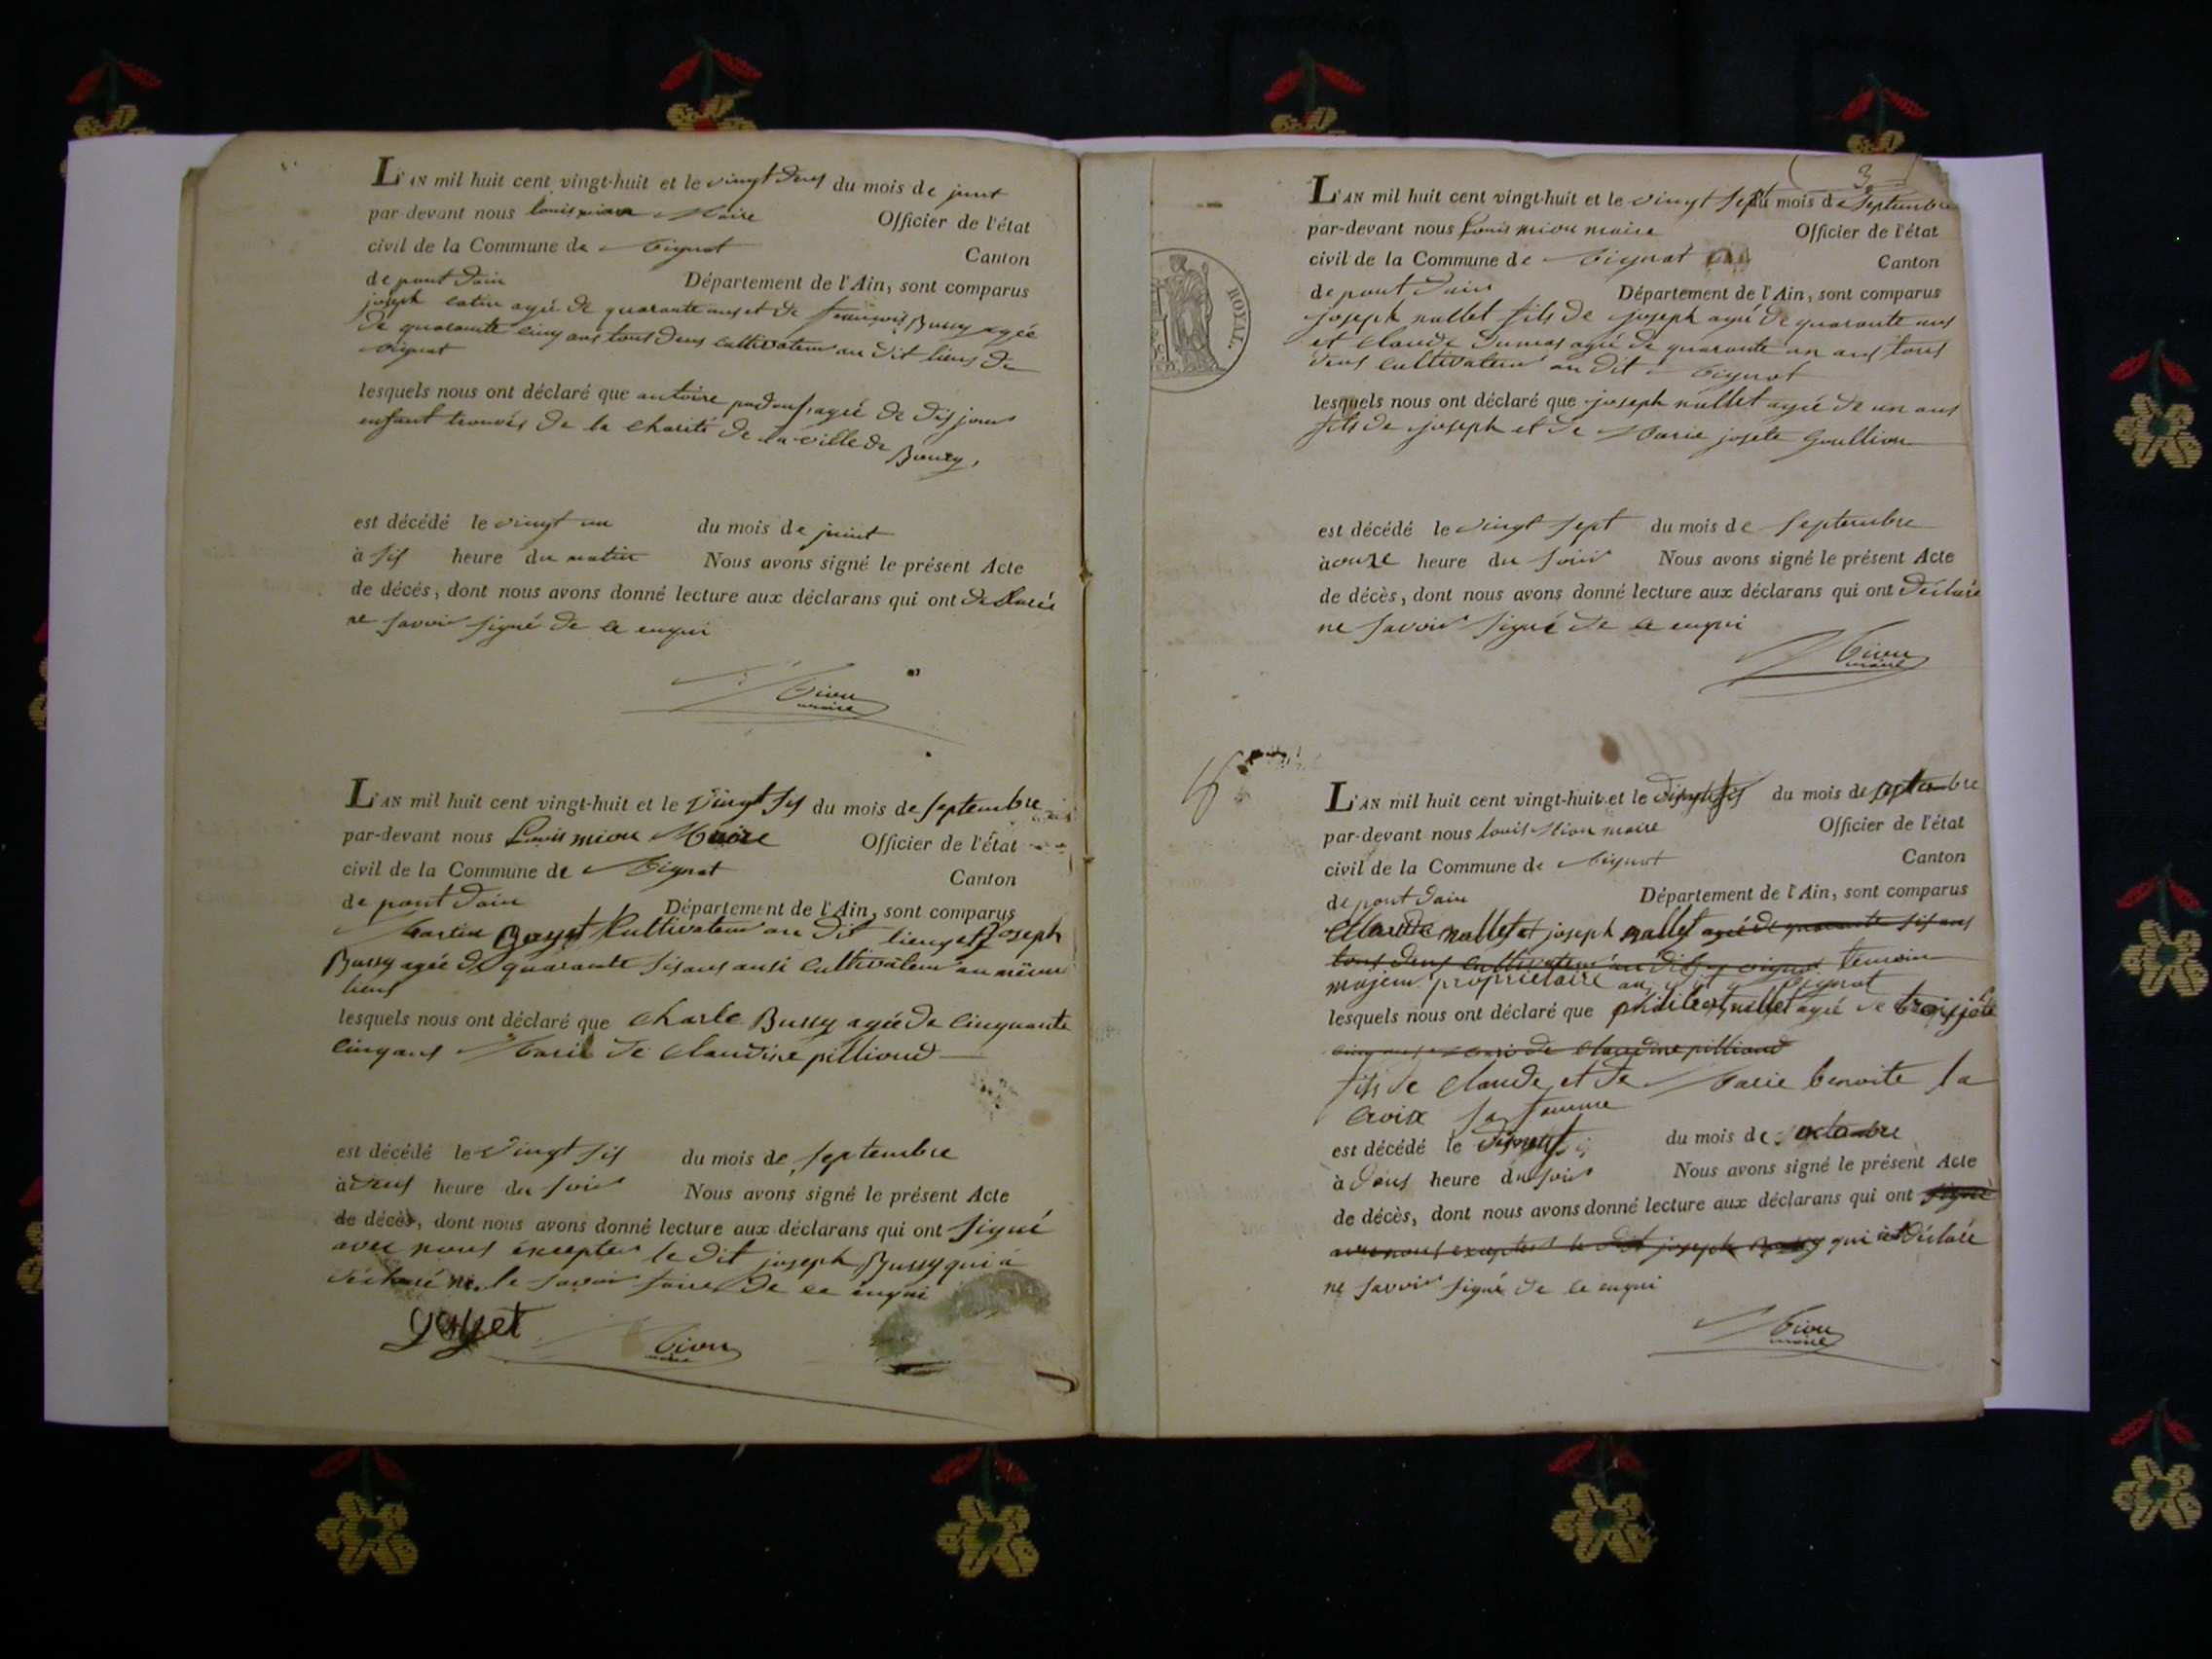 L'AN mil huit cent vingt-huit et le vingt deux du mois de juint
par-devant nous louis miou Maire Officier de l'état
civil de la Commune de Mignat Canton
de pont dain Département de l'Ain, sont comparus
joseph catin agé de quarante ans et de françois Bussy agée
de quarante cinq ans tous deux cultivateur au dit lieux de
Mignat
lesquels nous ont déclaré que antoire agé de dis jours
enfant trouvés de la charité de la ville de
Bourg,
est décédé le vingt un du mois de juint
à sis heure du matin Nous avons signé le présent Acte
de décés, dont nous avons donné lecture aux déclarans qui ont déclarés
ne savoir signé de ce enqui
Miou
maire
L'AN mil huit cent vingt-huit et le vingt sis du mois de septembre
par-devant nous Louis miou Maire Officier de l'état
civil de la Commune de Mignat Canton
de pont dain Département de l'Ain, sont comparus
Martin Gayet Cultivateur au dit lieux et joseph
Bussy agée de quarante sis ans ausi cultivateur au même
lieux
lesquels nous ont déclaré que charle Bussy agée de cinquante
cinq ans Marié de claudine pilliond
est décédé le vingt sis du mois de septembre
à deus heure du soir Nous avons signé le présent Acte
de décès, dont nous avons donné lecture aux déclarans qui ont signé
avec nous excepter le dit joseph Bussy qui à
déclaré ne le savoir faire de ce enqui
gayet Miou
maire
3
L'AN mil huit cent vingt-huit et le vingt sept du mois de septembre
par-devant nous Louis miou maire Officier de l'état
civil de la Commune de Mignat Canton
de pont dain Département de l'Ain, sont comparus
joseph nallet fils de joseph agé de quarante ans
et claude dumas agé de quarante un ans tous
deus cultivateur au dit Mignat
lesquels nous ont déclaré que joseph nallet agé de un ans
fils de joseph et de Marie josete Goullion
est décédé le vingt sept du mois de septembre
à onze heure du soir Nous avons signé le présent Acte
de décès, dont nous avons donné lecture aux déclarans qui ont déclaré
ne savoir signé de ce enqui
Miou
maire
ROYAL.
L'AN mil huit cent vingt-huit et le du mois de
par-devant nous louis Miou maire Officier de l'état
civil de la Commune de Mignat Canton
de pont dain Département de l'Ain, sont comparus
Claude nallet et joseph nallet agé de quarante sis ans
tous deus cultivateur au dit Mignat temoin
majeur propriétaire au dit Mignat
lesquels nous ont déclaré que philibert nallet agé de trois
cinq ans Mari de claudine pilliond
fils de claude et de Marie benoite la
croix sa femme
est décédé le du mois de
à deus heure du soir Nous avons signé le présent Acte
de décès, dont nous avons donné lecture aux déclarans qui ont signé
avec nous excepter le dit joseph Bussy qui ont déclaré
ne savoir signé de ce enqui
Miou
maire